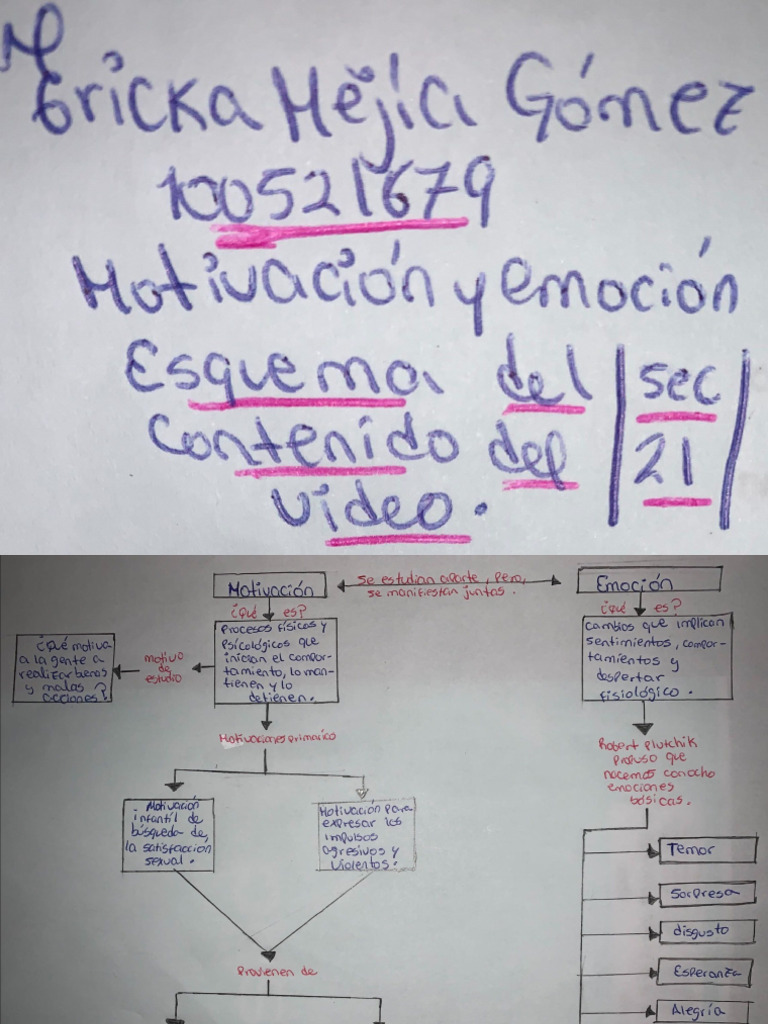 Ericka Mejía Gómez
100521679
Motivación y emoción
Esquema del
sec
contenido del
21
video.
Motivación
Se estudian aparte, pero,
se manifiestan juntas.
Emoción
¿Qué es?
Procesos físicos y
Psicológicos que
inician el compor-
tamiento, lo man-
tienen y lo
detienen.
motivo
de
estudio
¿Qué motiva
a la gente a
realizar benas
y malas
acciones?
Motivaciones primarico
Motivación
infantil de
búsqueda de
la satisfacción
sexual.
Motivación para
expresar los
impulsos
agresivos y
violentos.
Provienen de
¿Qué es?
cambios que implican
sentimientos, compor-
tamientos y
despertar
fisiológico.
Robert Plutchik
propuso que
nacemos con ocho
emociones
básicas.
Temor
Sorpresa
disgusto
Esperanza
Alegría